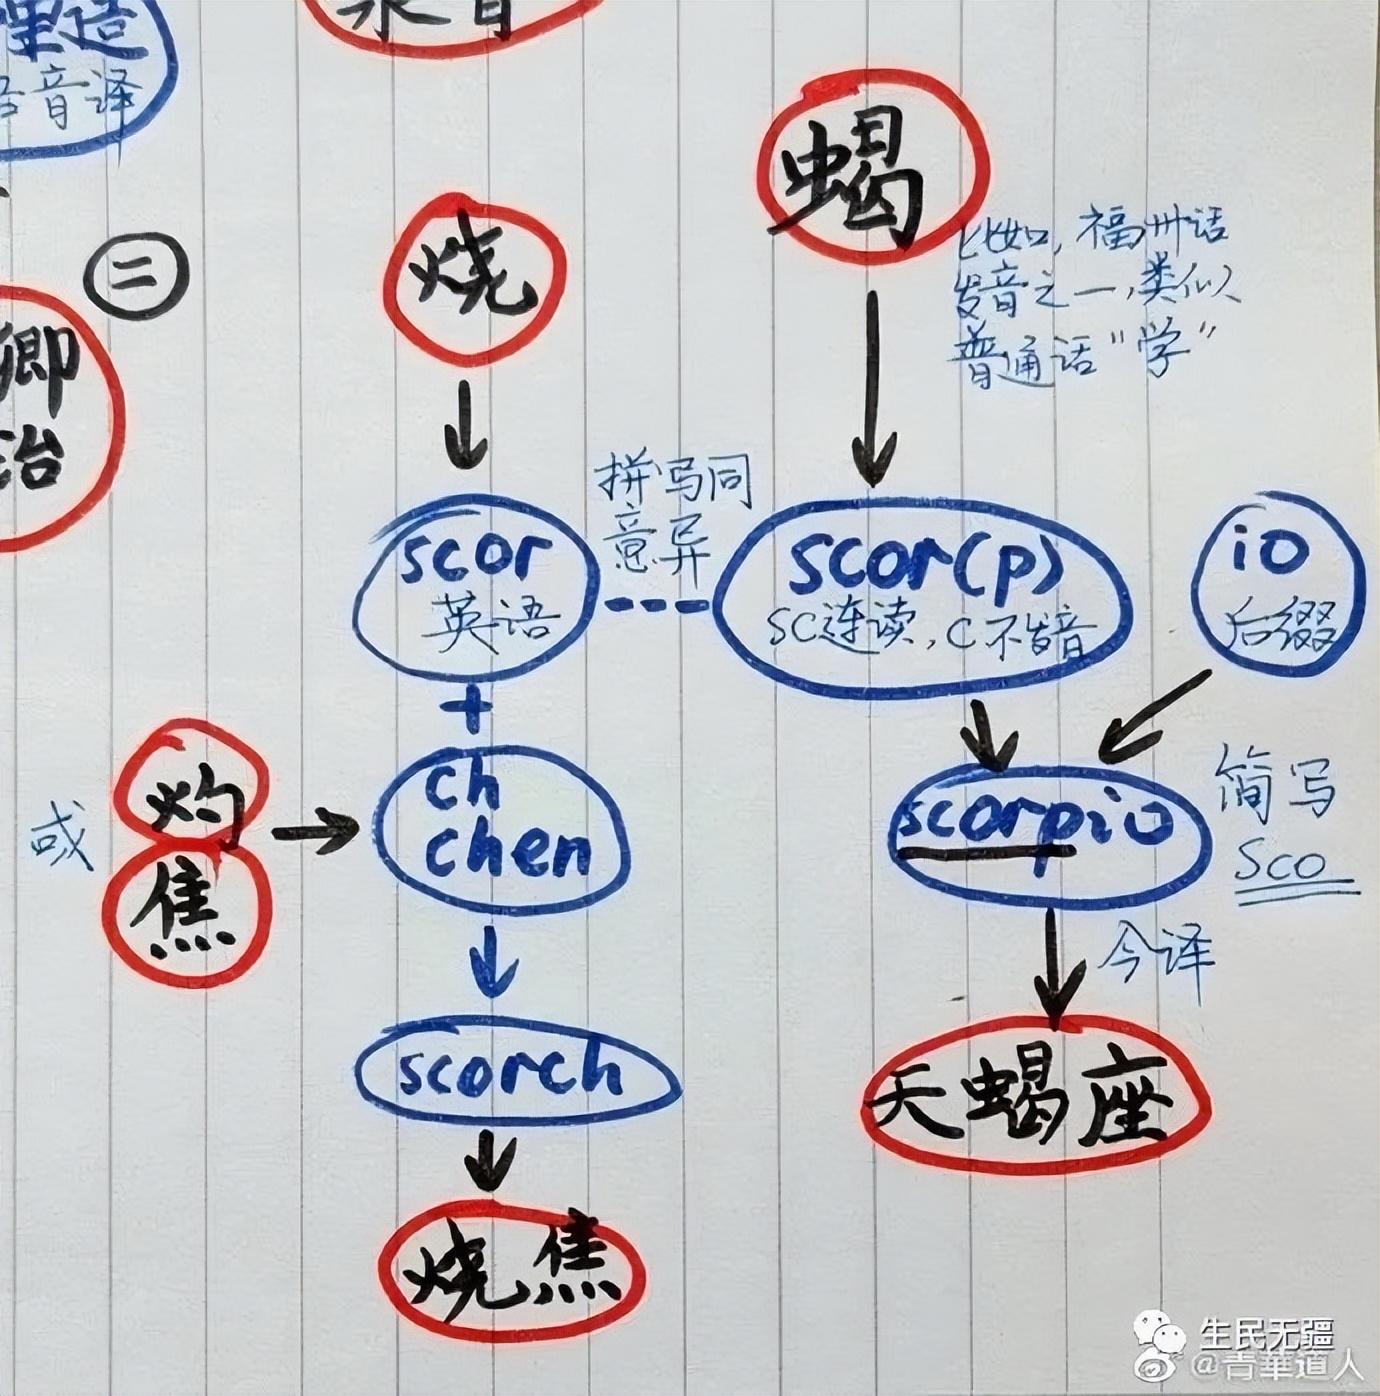 音译
㊁
卿
治
烧
scor
英语
+
ch
chen
或
灼
焦
scorch
烧焦
拼写同
意异
蝎
比如,福州话
发音之一,类似
普通话"学"
scor(p)
sc连读,c不发音
io
后缀
scorpio
简写
Sco
今译
天蝎座
生民无疆
@青華道人